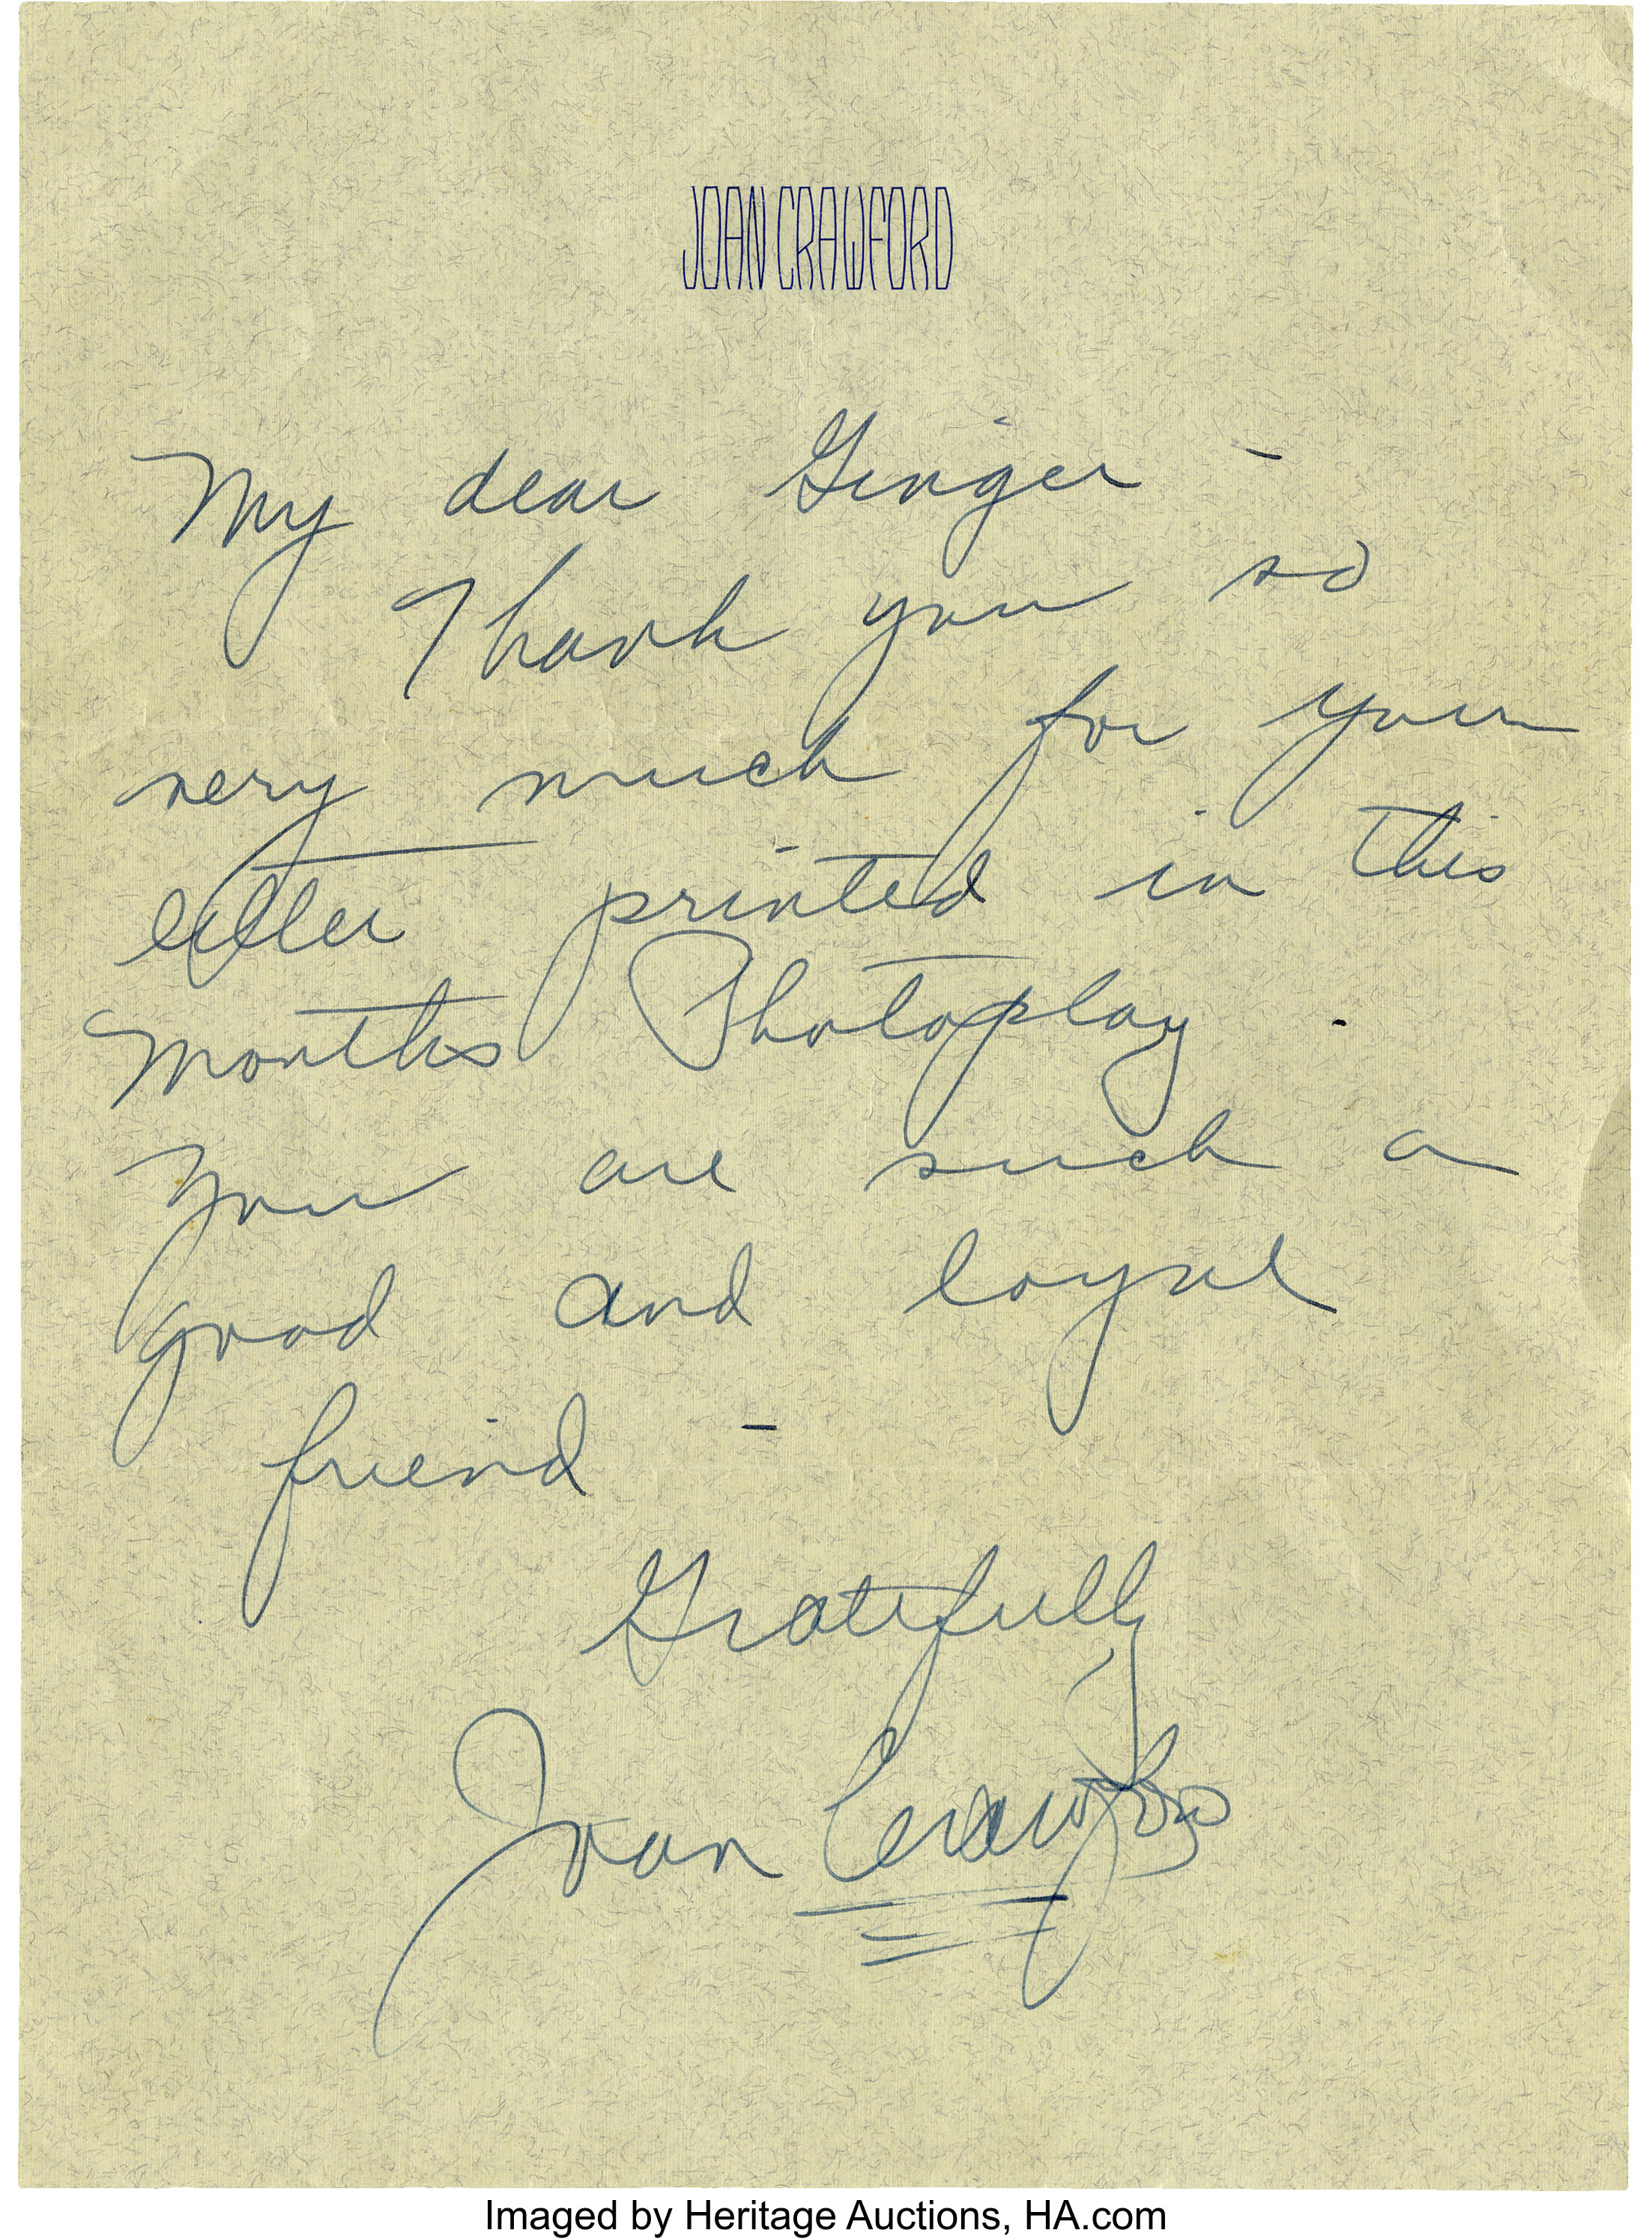 JOAN CRAWFORD
My dear Ginger -
Thank you so
very much for your
letter printed in this
months Photoplay.
You are such a
good and loyal
friend -
Gratefully
Joan Crawford
Imaged by Heritage Auctions, HA.com